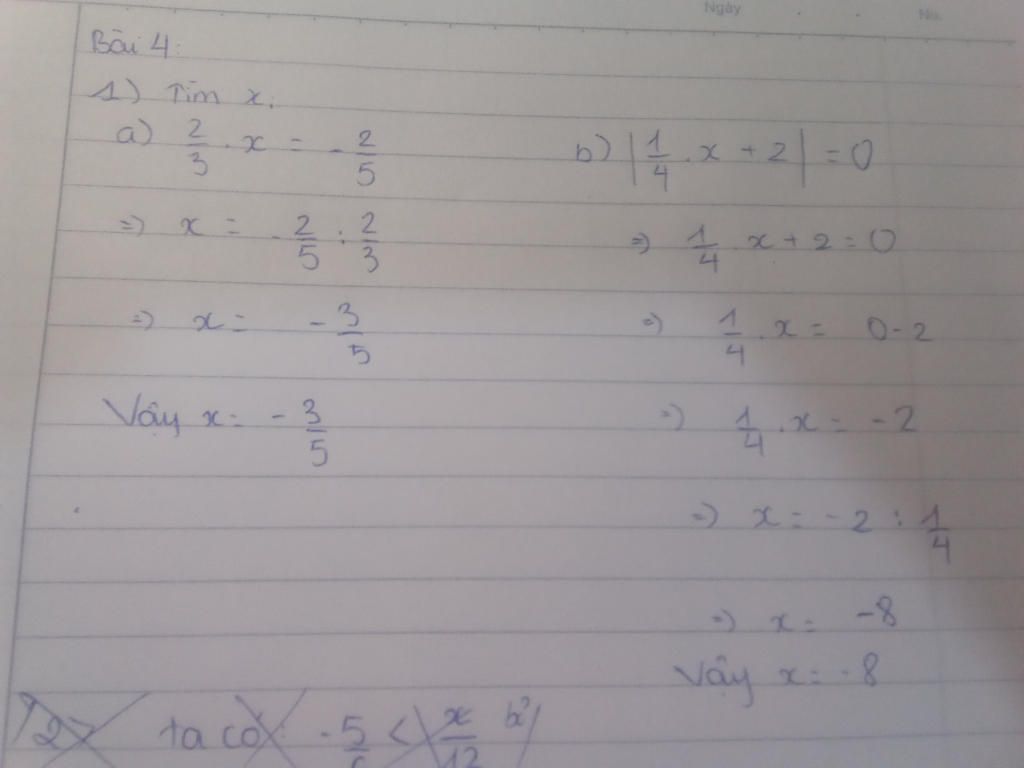 Ngày
No.
Bài 4:
1) Tìm x:
a) 2/3 . x = -2/5
=> x = -2/5 : 2/3
=> x = -3/5
Vậy x = -3/5
b) |1/4 . x + 2| = 0
=> 1/4 . x + 2 = 0
=> 1/4 . x = 0 - 2
=> 1/4 . x = -2
=> x = -2 : 1/4
=> x = -8
Vậy x = -8
2) ta có: -5/6 < x/12